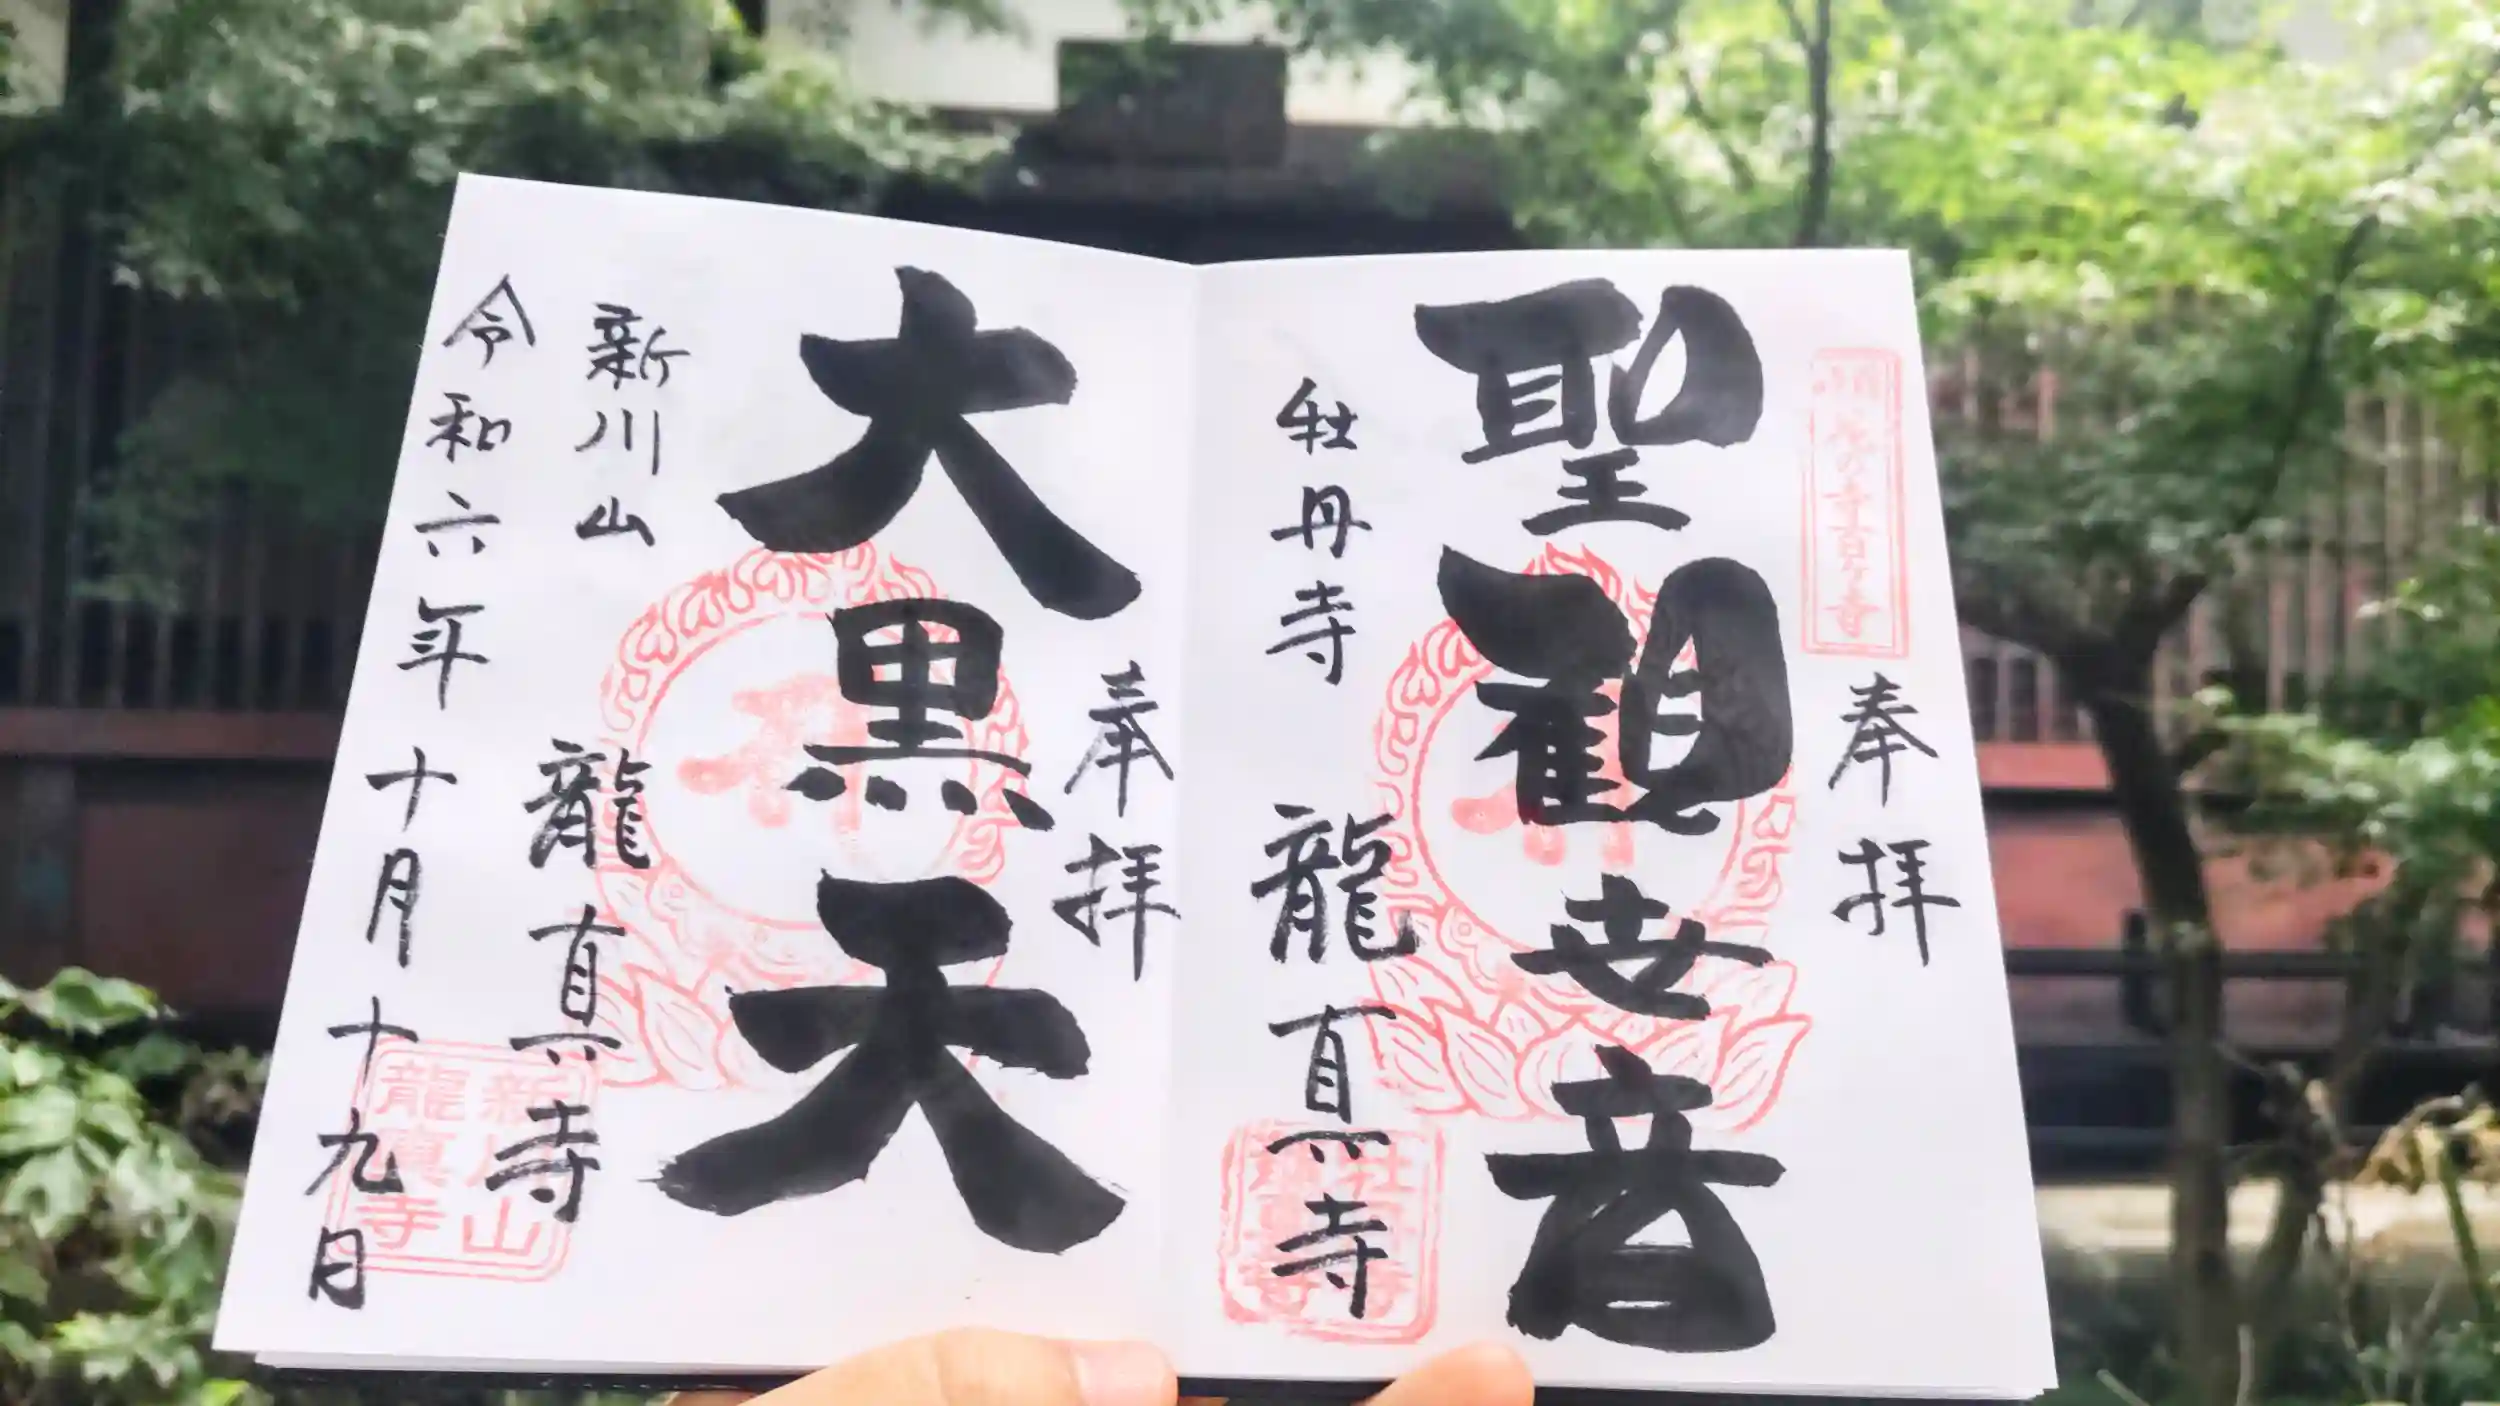 花の寺百ケ寺
奉拝
聖観世音
牡丹寺
龍真寺
奉拝
大黒天
新川山
龍真寺
令和六年十月十九日
新川山
龍眞寺